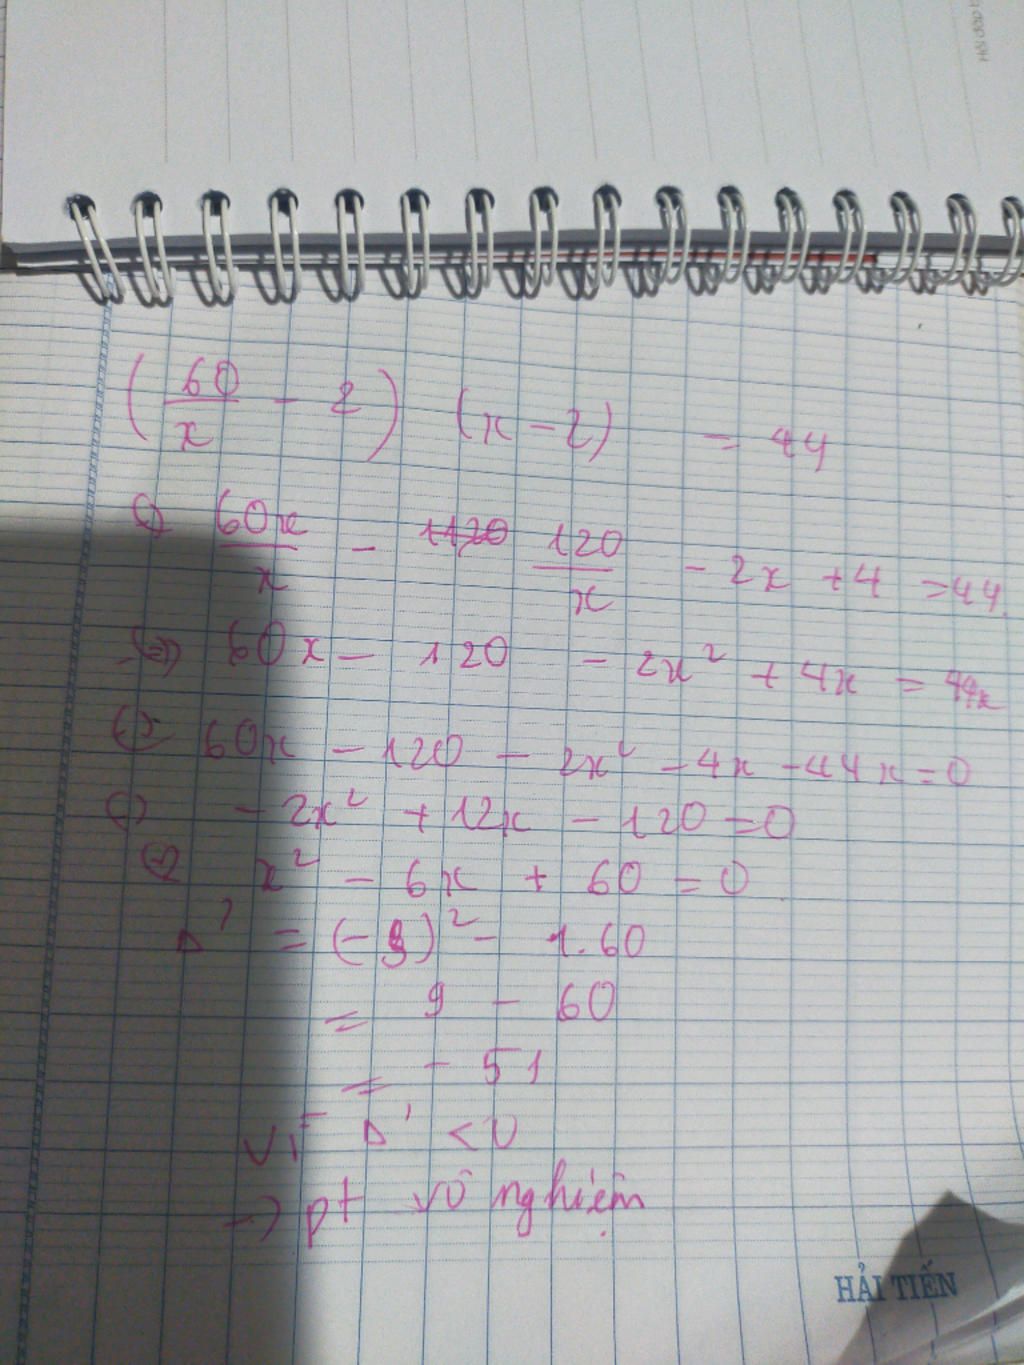 (60/x - 2) (x - 2) = 44
⇔ 60x/x - 1120 120/x - 2x + 4 = 44
⇔ 60x - 120 - 2x² + 4x = 44x
⇔ 60x - 120 - 2x² - 4x - 44x = 0
⇔ - 2x² + 12x - 120 = 0
⇔ x² - 6x + 60 = 0
Δ' = (-3)² - 1.60
= 9 - 60
= - 51
Vì Δ' < 0
→ pt vô nghiệm
HẢI TIẾN